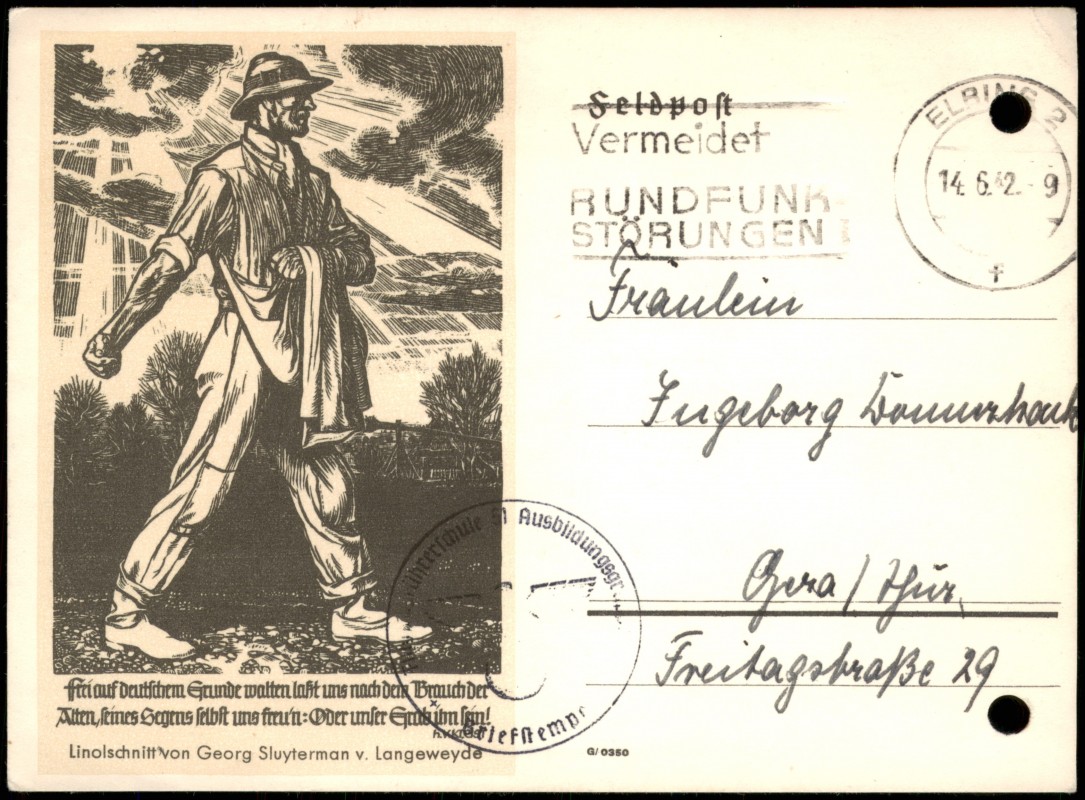 Frei auf deutschem Grunde walten laßt uns nach dem Brauch der
Alten, seines Segens selbst uns freu'n: Oder unser Grab ihm sein!
Linolschnitt von Georg Sluyterman v. Langeweyde
Feldpost
Vermeidet
RUNDFUNK-
STÖRUNGEN !
ELBING 2
14.6.42.-9
f
Fräulein
Ingeborg
Gera / Thür.
Freitagstraße 29
51 Ausbildungsgr
Briefstempe
G/0350